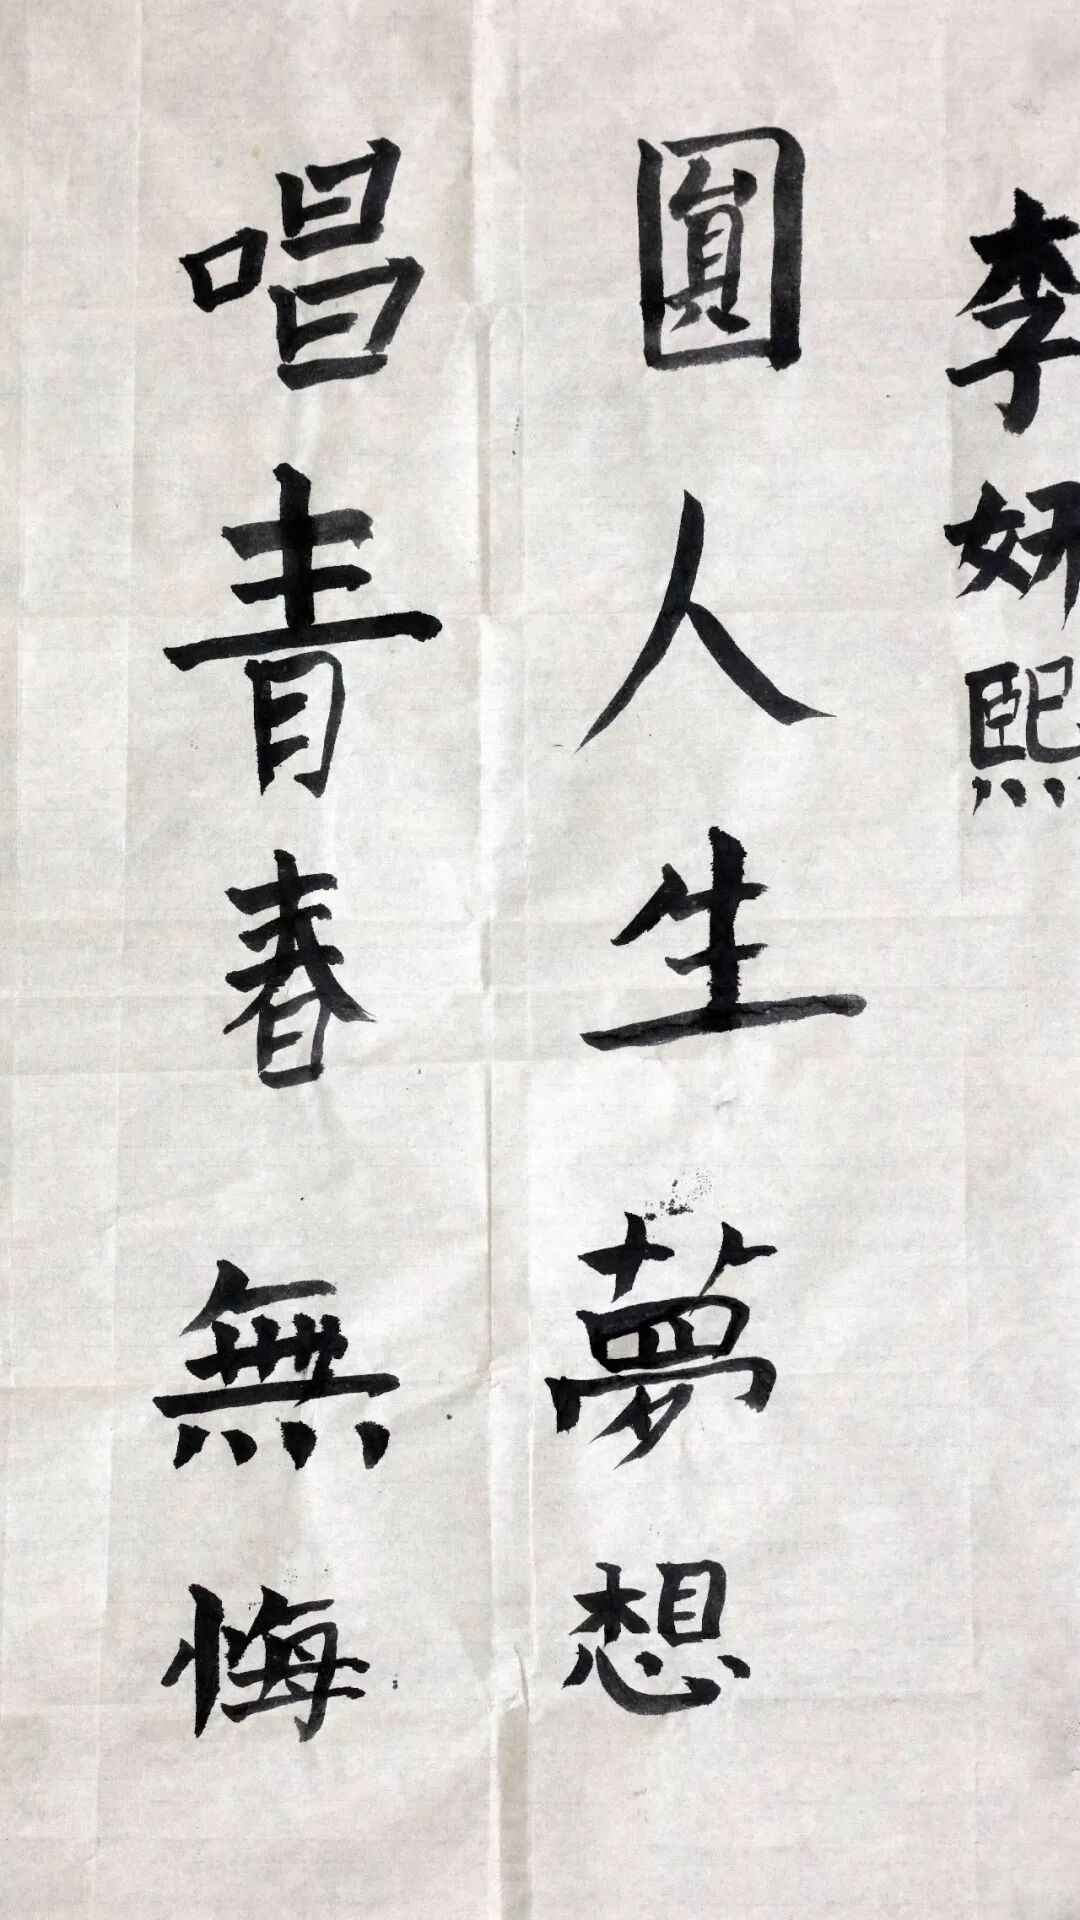 李妍熙
圓人生夢想
唱青春無悔